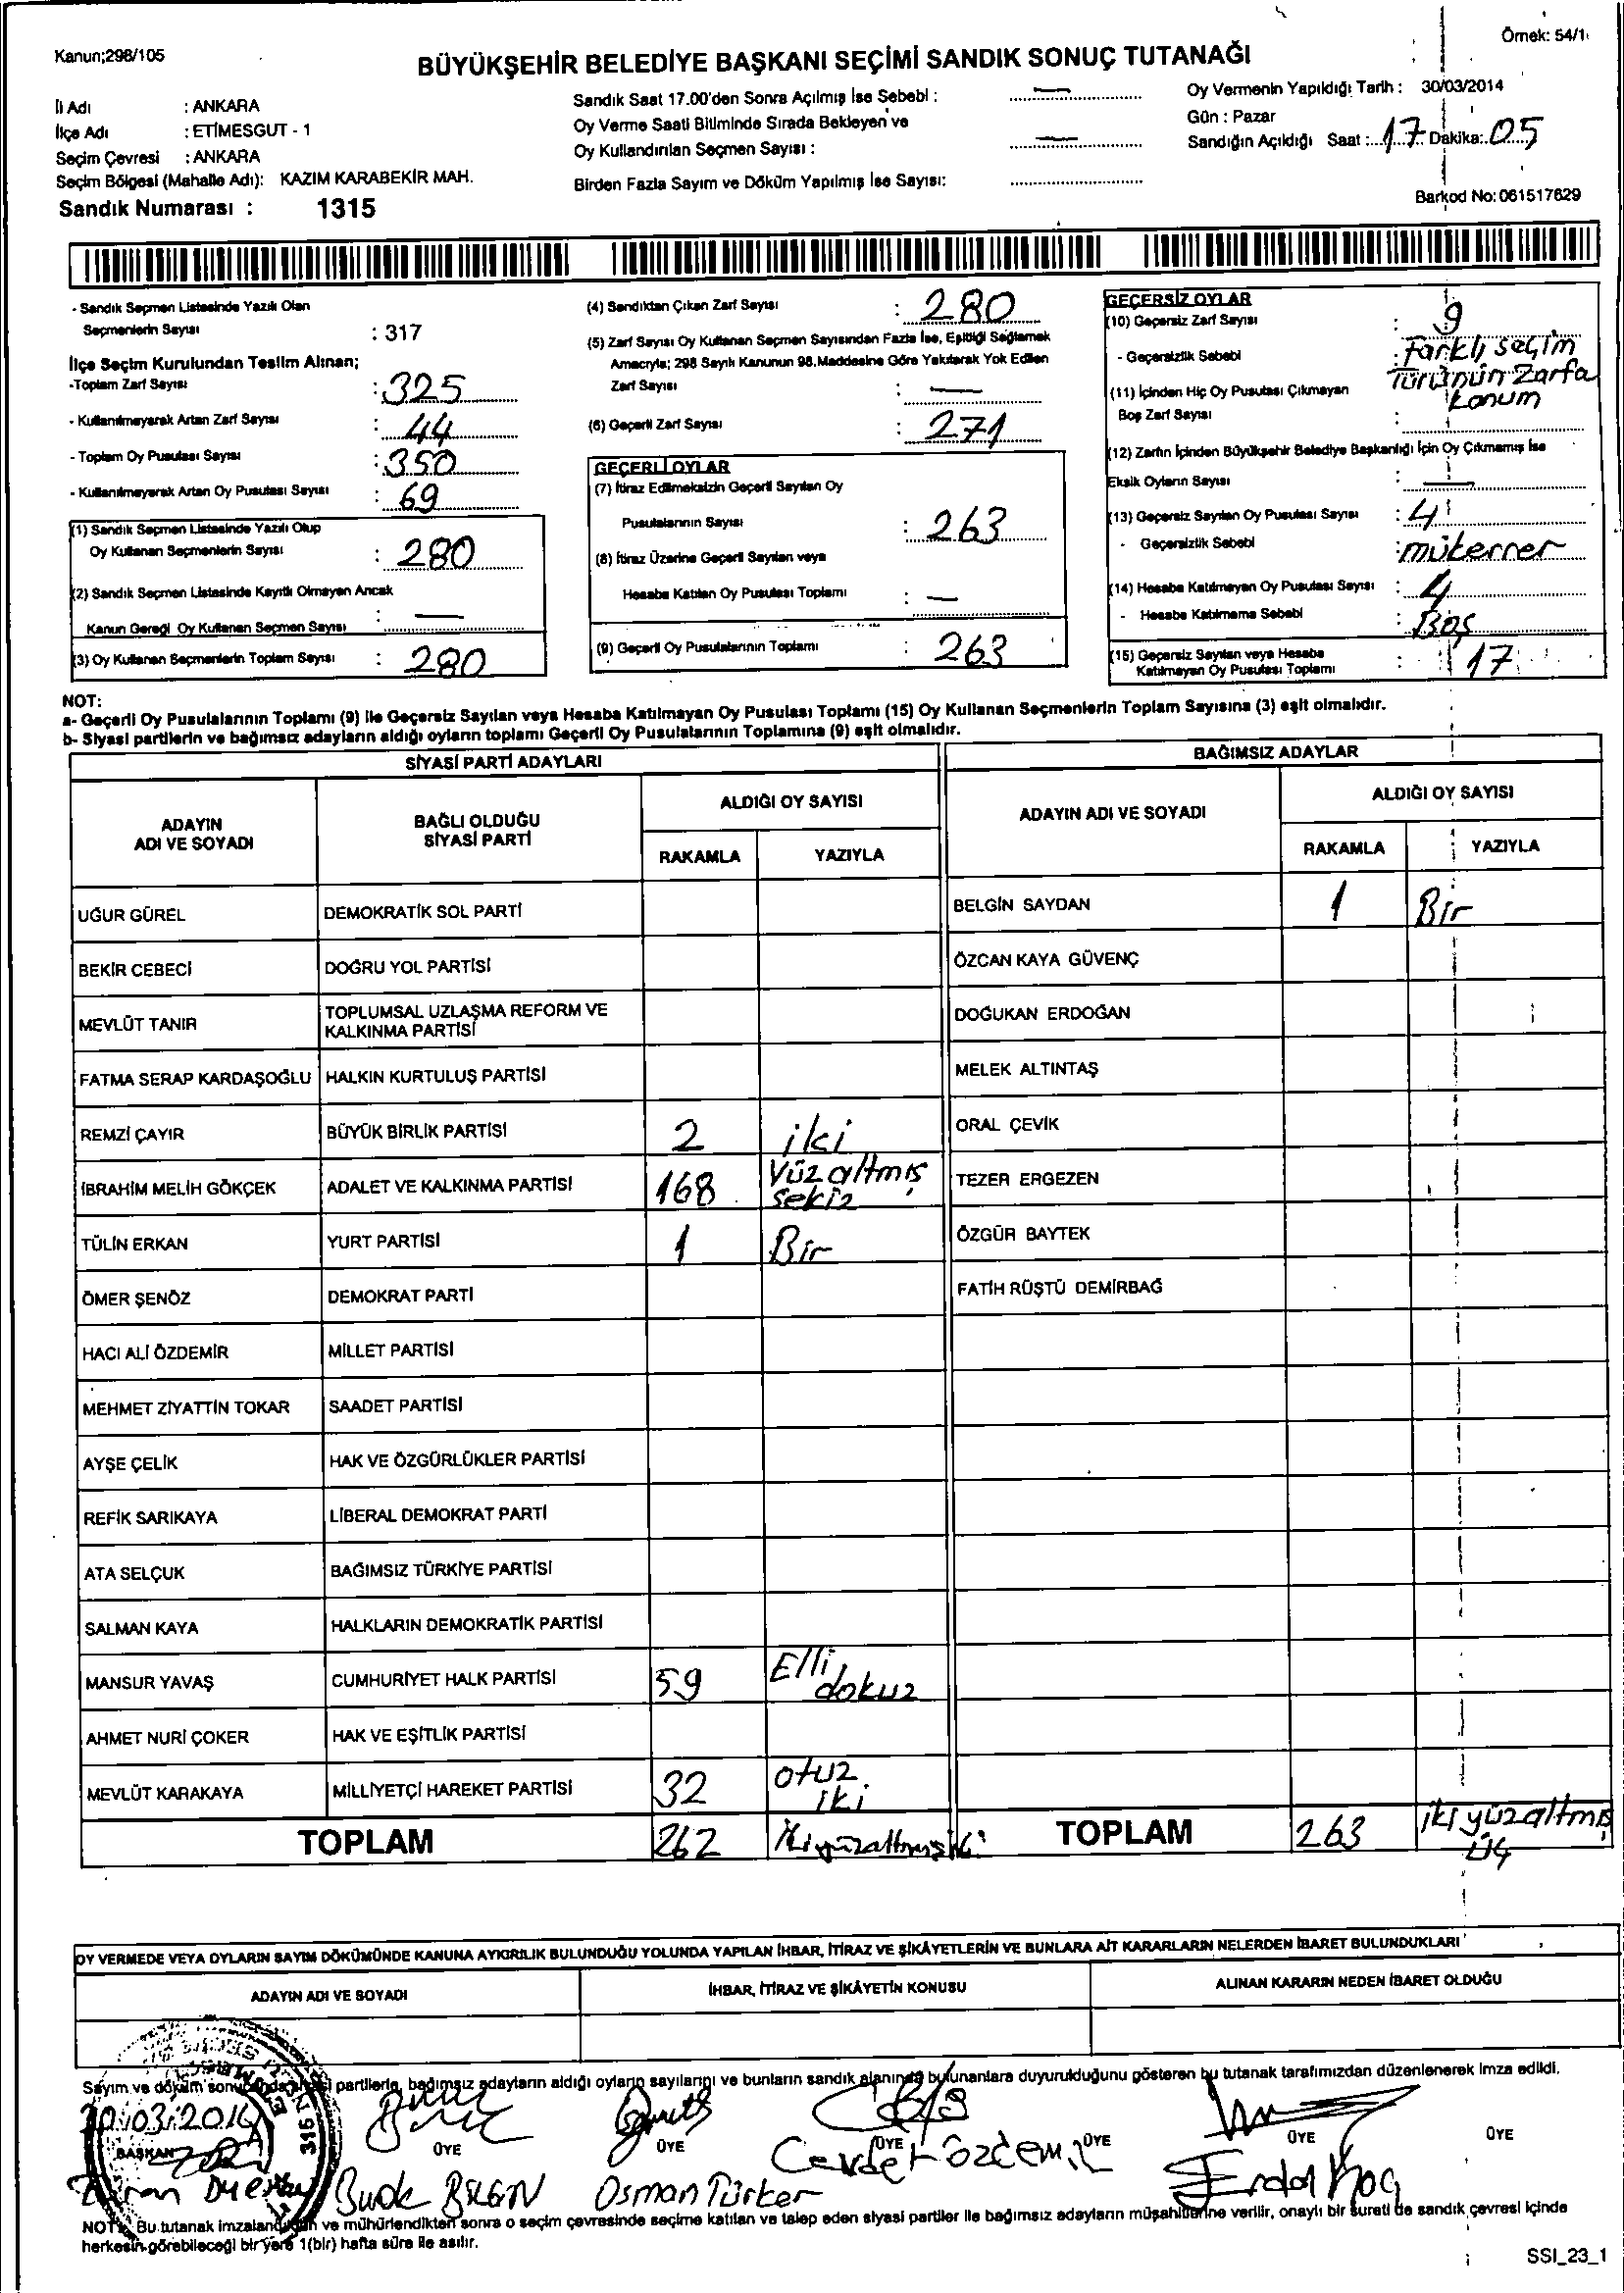 Kanun;298/105
Örnek: 54/1
BÜYÜKŞEHİR BELEDİYE BAŞKANI SEÇİMİ SANDIK SONUÇ TUTANAĞI
İl Adı : ANKARA
İlçe Adı : ETİMESGUT - 1
Seçim Çevresi : ANKARA
Seçim Bölgesi (Mahalle Adı): KAZIM KARABEKİR MAH.
Sandık Numarası : 1315
Sandık Saat 17.00'den Sonra Açılmış İse Sebebi : —
Oy Verme Saati Bitiminde Sırada Bekleyen ve
Oy Kullandırılan Seçmen Sayısı : —
Birden Fazla Sayım ve Döküm Yapılmış İse Sayısı:
Oy Vermenin Yapıldığı Tarih : 30/03/2014
Gün : Pazar
Sandığın Açıldığı Saat : 17 Dakika: 05
Barkod No: 061517629
- Sandık Seçmen Listesinde Yazılı Olan
Seçmenlerin Sayısı : 317
İlçe Seçim Kurulundan Teslim Alınan;
-Toplam Zarf Sayısı : 325
- Kullanılmayarak Artan Zarf Sayısı : 44
- Toplam Oy Pusulası Sayısı : 350
- Kullanılmayarak Artan Oy Pusulası Sayısı : 69
(1) Sandık Seçmen Listesinde Yazılı Olup
Oy Kullanan Seçmenlerin Sayısı : 280
(2) Sandık Seçmen Listesinde Kayıtlı Olmayan Ancak
Kanun Gereği Oy Kullanan Seçmen Sayısı : —
(3) Oy Kullanan Seçmenlerin Toplam Sayısı : 280
(4) Sandıktan Çıkan Zarf Sayısı : 280
(5) Zarf Sayısı Oy Kullanan Seçmen Sayısından Fazla İse, Eşitliği Sağlamak
Amacıyla; 298 Sayılı Kanunun 98.Maddesine Göre Yakılarak Yok Edilen
Zarf Sayısı : —
(6) Geçerli Zarf Sayısı : 271
GEÇERLİ OYLAR
(7) İtiraz Edilmeksizin Geçerli Sayılan Oy
Pusulalarının Sayısı : 263
(8) İtiraz Üzerine Geçerli Sayılan veya
Hesaba Katılan Oy Pusulası Toplamı : —
(9) Geçerli Oy Pusulalarının Toplamı : 263
GEÇERSİZ OYLAR
(10) Geçersiz Zarf Sayısı : 9
- Geçersizlik Sebebi : Farklı seçim
Türünün Zarfa
konum
(11) İçinden Hiç Oy Pusulası Çıkmayan
Boş Zarf Sayısı :
(12) Zarfın İçinden Büyükşehir Belediye Başkanlığı İçin Oy Çıkmamış İse
Eksik Oyların Sayısı : —
(13) Geçersiz Sayılan Oy Pusulası Sayısı : 4
- Geçersizlik Sebebi : mükerrer
(14) Hesaba Katılmayan Oy Pusulası Sayısı : 4
- Hesaba Katılmama Sebebi : Boş
(15) Geçersiz Sayılan veya Hesaba
Katılmayan Oy Pusulası Toplamı : 17
NOT:
a- Geçerli Oy Pusulalarının Toplamı (9) ile Geçersiz Sayılan veya Hesaba Katılmayan Oy Pusulası Toplamı (15) Oy Kullanan Seçmenlerin Toplam Sayısına (3) eşit olmalıdır.
b- Siyasi partilerin ve bağımsız adayların aldığı oyların toplamı Geçerli Oy Pusulalarının Toplamına (9) eşit olmalıdır.
SİYASİ PARTİ ADAYLARI
ADAYIN ADI VE SOYADI
BAĞLI OLDUĞU SİYASİ PARTİ
ALDIĞI OY SAYISI
RAKAMLA YAZIYLA
UĞUR GÜREL DEMOKRATİK SOL PARTİ
BEKİR CEBECİ DOĞRU YOL PARTİSİ
MEVLÜT TANIR TOPLUMSAL UZLAŞMA REFORM VE
KALKINMA PARTİSİ
FATMA SERAP KARDAŞOĞLU HALKIN KURTULUŞ PARTİSİ
REMZİ ÇAYIR BÜYÜK BİRLİK PARTİSİ 2 iki
İBRAHİM MELİH GÖKÇEK ADALET VE KALKINMA PARTİSİ 168 Yüzaltmış
sekiz
TÜLİN ERKAN YURT PARTİSİ 1 Bir
ÖMER ŞENÖZ DEMOKRAT PARTİ
HACI ALİ ÖZDEMİR MİLLET PARTİSİ
MEHMET ZİYATTİN TOKAR SAADET PARTİSİ
AYŞE ÇELİK HAK VE ÖZGÜRLÜKLER PARTİSİ
REFİK SARIKAYA LİBERAL DEMOKRAT PARTİ
ATA SELÇUK BAĞIMSIZ TÜRKİYE PARTİSİ
SALMAN KAYA HALKLARIN DEMOKRATİK PARTİSİ
MANSUR YAVAŞ CUMHURİYET HALK PARTİSİ 59 Elli
dokuz
AHMET NURİ ÇOKER HAK VE EŞİTLİK PARTİSİ
MEVLÜT KARAKAYA MİLLİYETÇİ HAREKET PARTİSİ 32 otuz
iki
TOPLAM 262 ikiyüzaltmışiki
BAĞIMSIZ ADAYLAR
ADAYIN ADI VE SOYADI
ALDIĞI OY SAYISI
RAKAMLA YAZIYLA
BELGİN SAYDAN 1 Bir
ÖZCAN KAYA GÜVENÇ
DOĞUKAN ERDOĞAN
MELEK ALTINTAŞ
ORAL ÇEVİK
TEZER ERGEZEN
ÖZGÜR BAYTEK
FATİH RÜŞTÜ DEMİRBAĞ
TOPLAM 263 ikiyüzaltmış
üç
OY VERMEDE VEYA OYLARIN SAYIM DÖKÜMÜNDE KANUNA AYKIRILIK BULUNDUĞU YOLUNDA YAPILAN İHBAR, İTİRAZ VE ŞİKÂYETLERİN VE BUNLARA AİT KARARLARIN NELERDEN İBARET BULUNDUKLARI
ADAYIN ADI VE SOYADI
İHBAR, İTİRAZ VE ŞİKÂYETİN KONUSU
ALINAN KARARIN NEDEN İBARET OLDUĞU
Sayım ve döküm sonucunda siyasi partilerle, bağımsız adayların aldığı oyların sayılarını ve bunların sandık alanında bulunanlara duyurulduğunu gösteren bu tutanak tarafımızdan düzenlenerek imza edildi.
30/03/2014
BAŞKAN ÜYE ÜYE ÜYE ÜYE ÜYE ÜYE
Burak BİLGİN Osman Türker Cevdet Özdemir Erdal Koç
NOT: Bu tutanak imzalandıktan ve mühürlendikten sonra o seçim çevresinde seçime katılan ve talep eden siyasi partiler ile bağımsız adayların müşahitlerine verilir, onaylı bir sureti de sandık çevresi içinde
herkesin görebileceği bir yere 1(bir) hafta süre ile asılır.
SSI_23_1